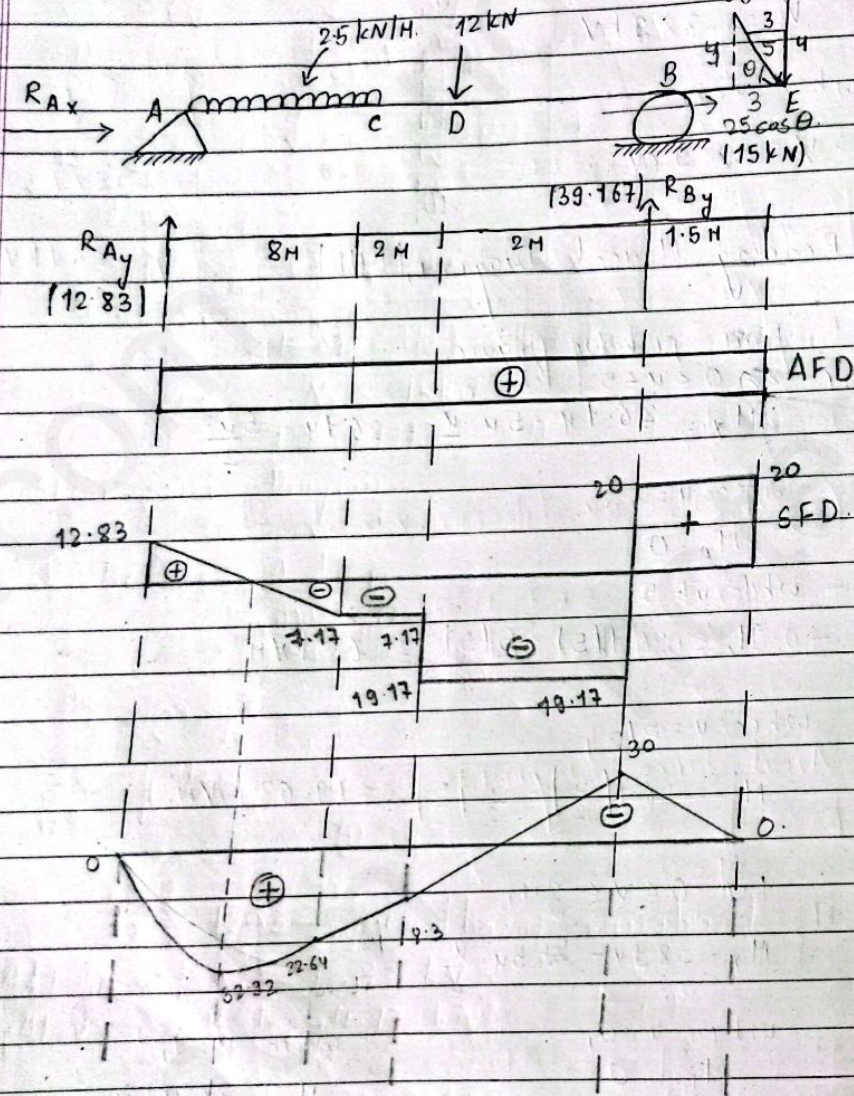 2.5 kN/M. 12 kN
3
4 5 4
θ
R Ax A C D B 3 E
25 cos θ
(15 kN)
(39.167) R By
R Ay 8M 2M 2M 1.5M
(12.83)
⊕ AFD
20 20
12.83 + SFD
⊕ ⊖ ⊖
7.17 7.17 ⊖
19.17 19.17
30
⊖
0 0.
⊕
18.3
22.64
32.32